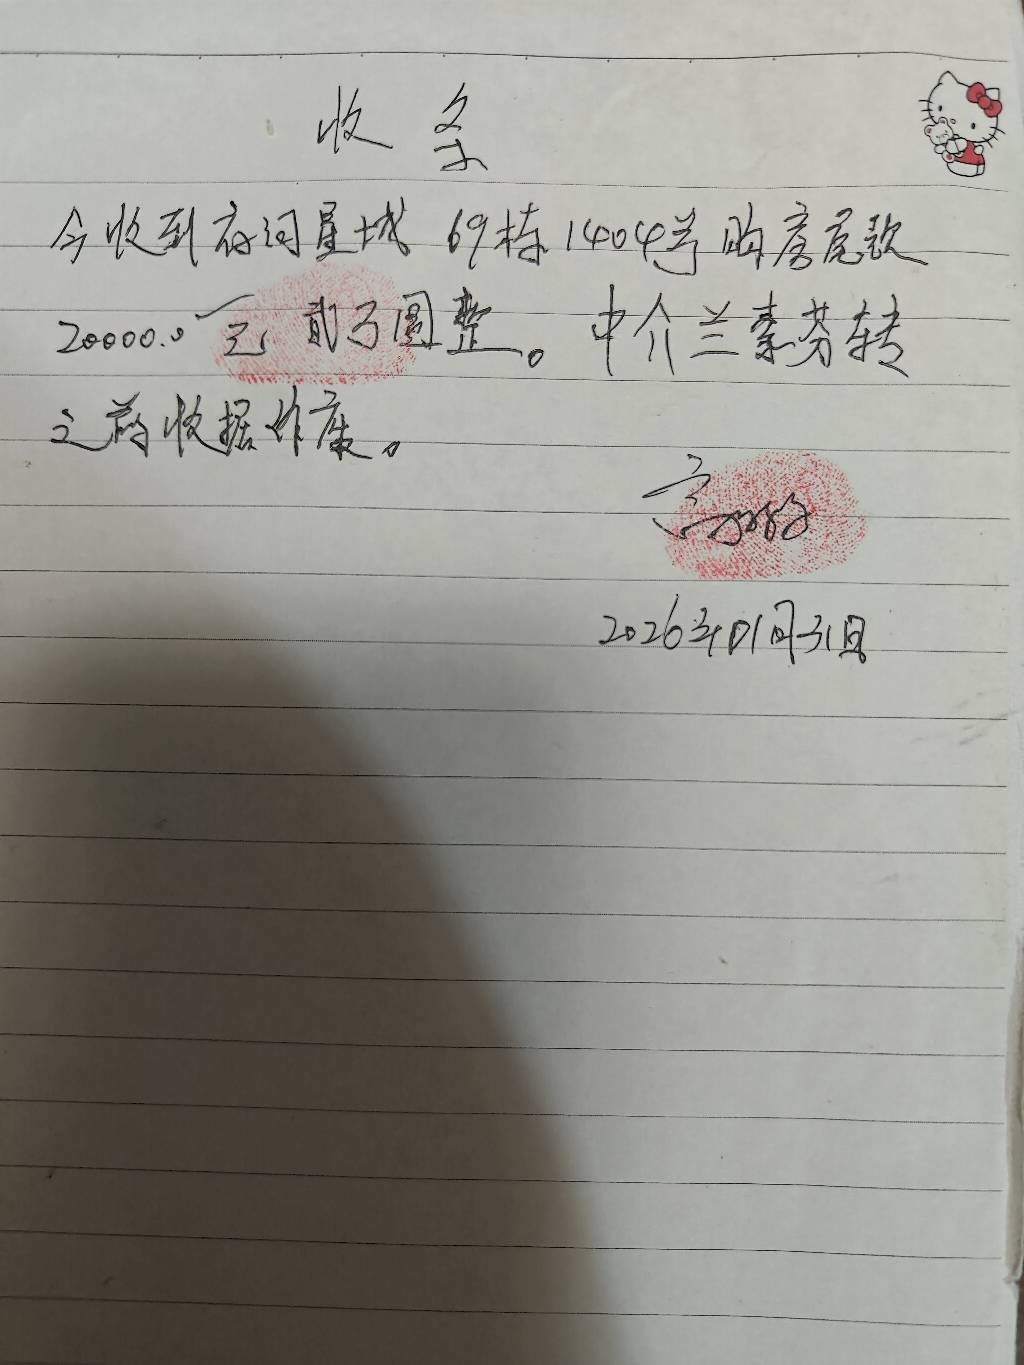 收条
今收到存河星城 69栋1404号购房尾款
20000.0元 贰万圆整。 中介兰素芬转
之前收据作废。
2026年01月31日